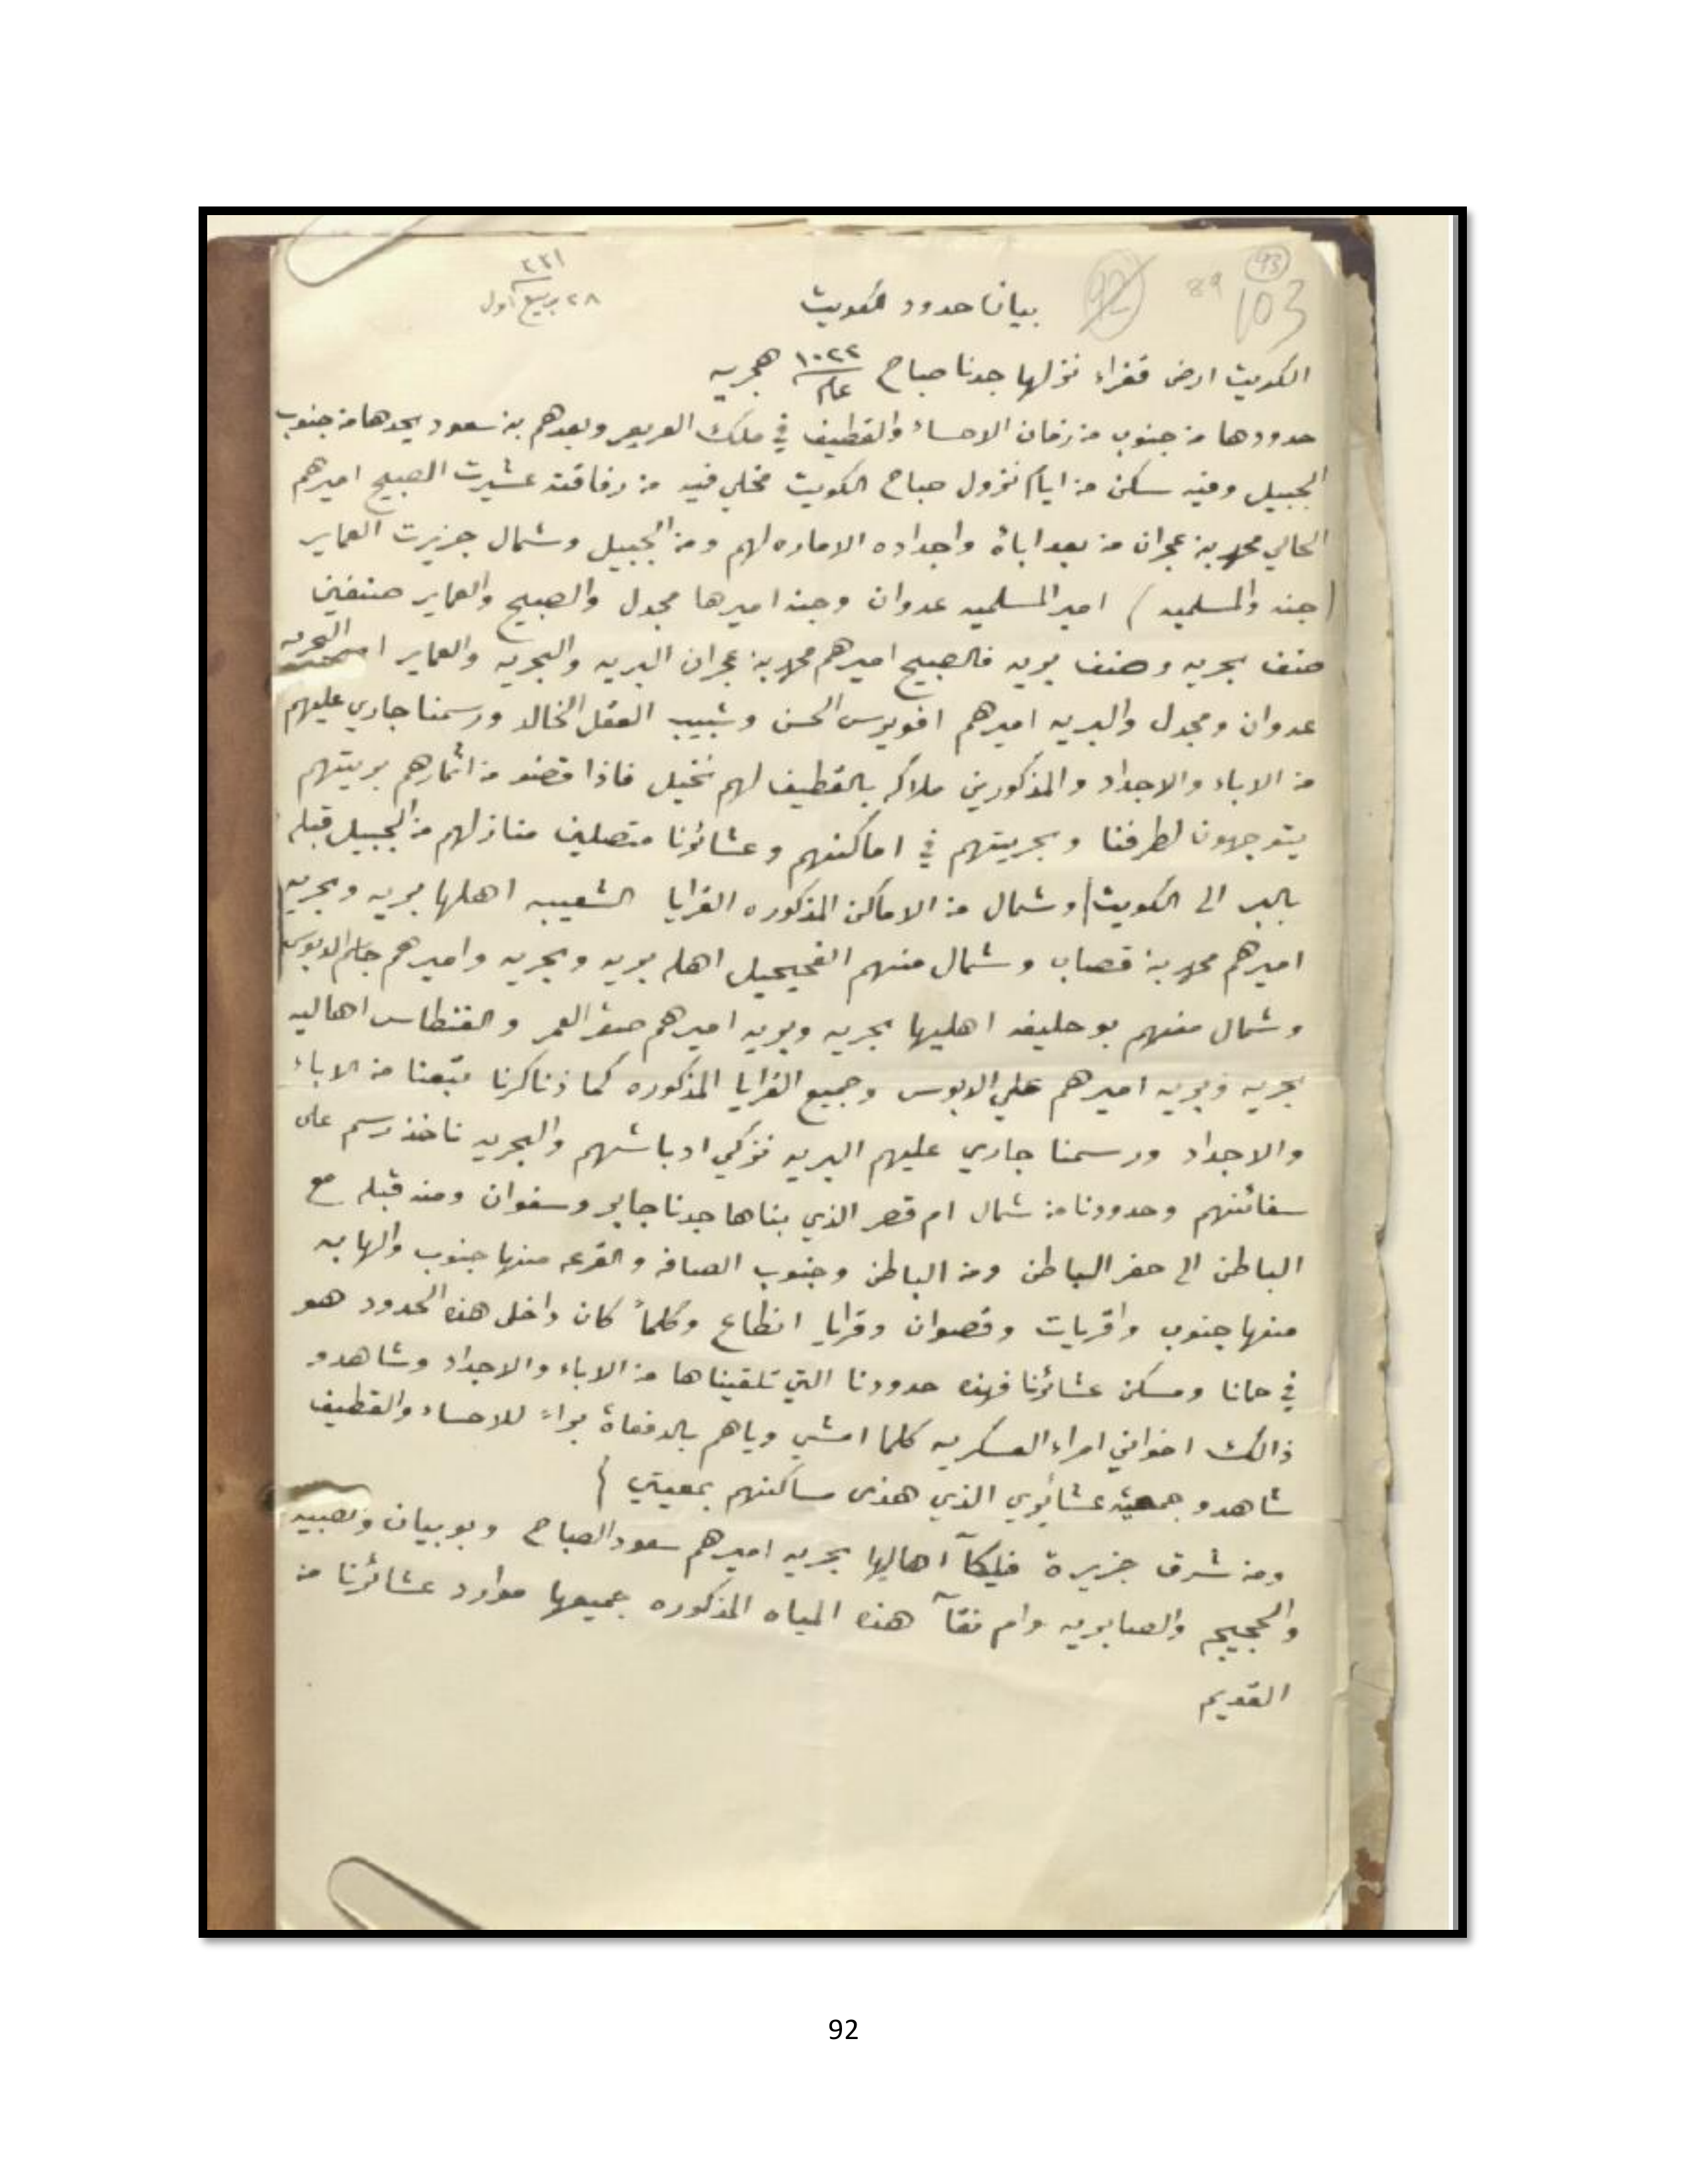 93
103
89
92
٣٣١
٢٨ ربيع اول
بيان حدود الكويت
الكويت ارض قفراء نزلها جدنا صباح عام ١٠٢٢ هجريه
حدودها من جنوب من زمان الاحساء والقطيف في ملك العريعر وبعدهم بن سعود يحدها من جنوب
الجبيل وفيه سكن من ايام نزول صباح الكويت مخلي فيه من رفاقته عشيرت الصبيح اميرهم
الحالي محمد بن عجران من بعد اباة واجداده الاماره لهم ومن الجبيل وشمال جزيرت العماير
(جنه والمسلميه) امير المسلميه عدوان وجنه اميرها مجدل والصبيح والعماير صنفين
صنف بحريه وصنف بريه فالصبيح اميرهم محمد بن عجران البريه والبحريه والعماير البحريه
عدوان ومجدل والبريه اميرهم الحسن وشبيب العقل الخالد ورسمنا جاري عليهم
من الاباء والاجداد والمذكورين ملاكه بالقطيف لهم نخيل فاذا قضو من اثمارهم بريتهم
يتوجهون لطرفنا وبحريتهم في اماكنهم وعشائرنا متصلين منازلهم من الجبيل قبله
بالبر الى الكويت/ وشمال من الاماكن المذكوره القرايا الشعيبه اهلها بريه وبحريه
اميرهم محمد بن قصاب وشمال منهم الفحيحيل اهله بريه وبحريه واميرهم جاسم الدبوس
وشمال منهم بو حليفه اهليها بحريه وبريه اميرهم صقر العمر والفنطاس اهاليه
بحريه وبريه اميرهم علي الدبوس وجميع القرايا المذكوره كما ذناكرنا تبعنا من الاباء
والاجداد ورسمنا جاري عليهم البريه نزكي ادباشهم والبحريه ناخذ رسم على
سفائنهم وحدودنا من شمال ام قصر الذي بناها جدنا جابر وسفوان ومنه قبله مع
الباطن الى حفر الباطن ومن الباطن وجنوب الصافه والقرعه منها جنوب والهابه
منها جنوب واقريات وقصوان وقرايا انطاع وكلماً كان داخل هذه الحدود هو
في حمانا ومسكن عشائرنا فهذه حدودنا التي تلقيناها من الاباء والاجداد وشاهدو
ذالك اخواني امراء العسكريه كلما امشي وياهم بالدفعاة براءً للاحساء والقطيف
شاهدو جمعية عشائري الذي هذى مساكنهم بمعيتي )
ومن شرق جزيرة فيلكآ اهاليها بحريه اميرهم سعود الصباح وبوبيان وصبيه
والحجيجه والصابريه وام نقآ هذه المياه المذكوره جميعها موارد عشائرنا من
القديم
92